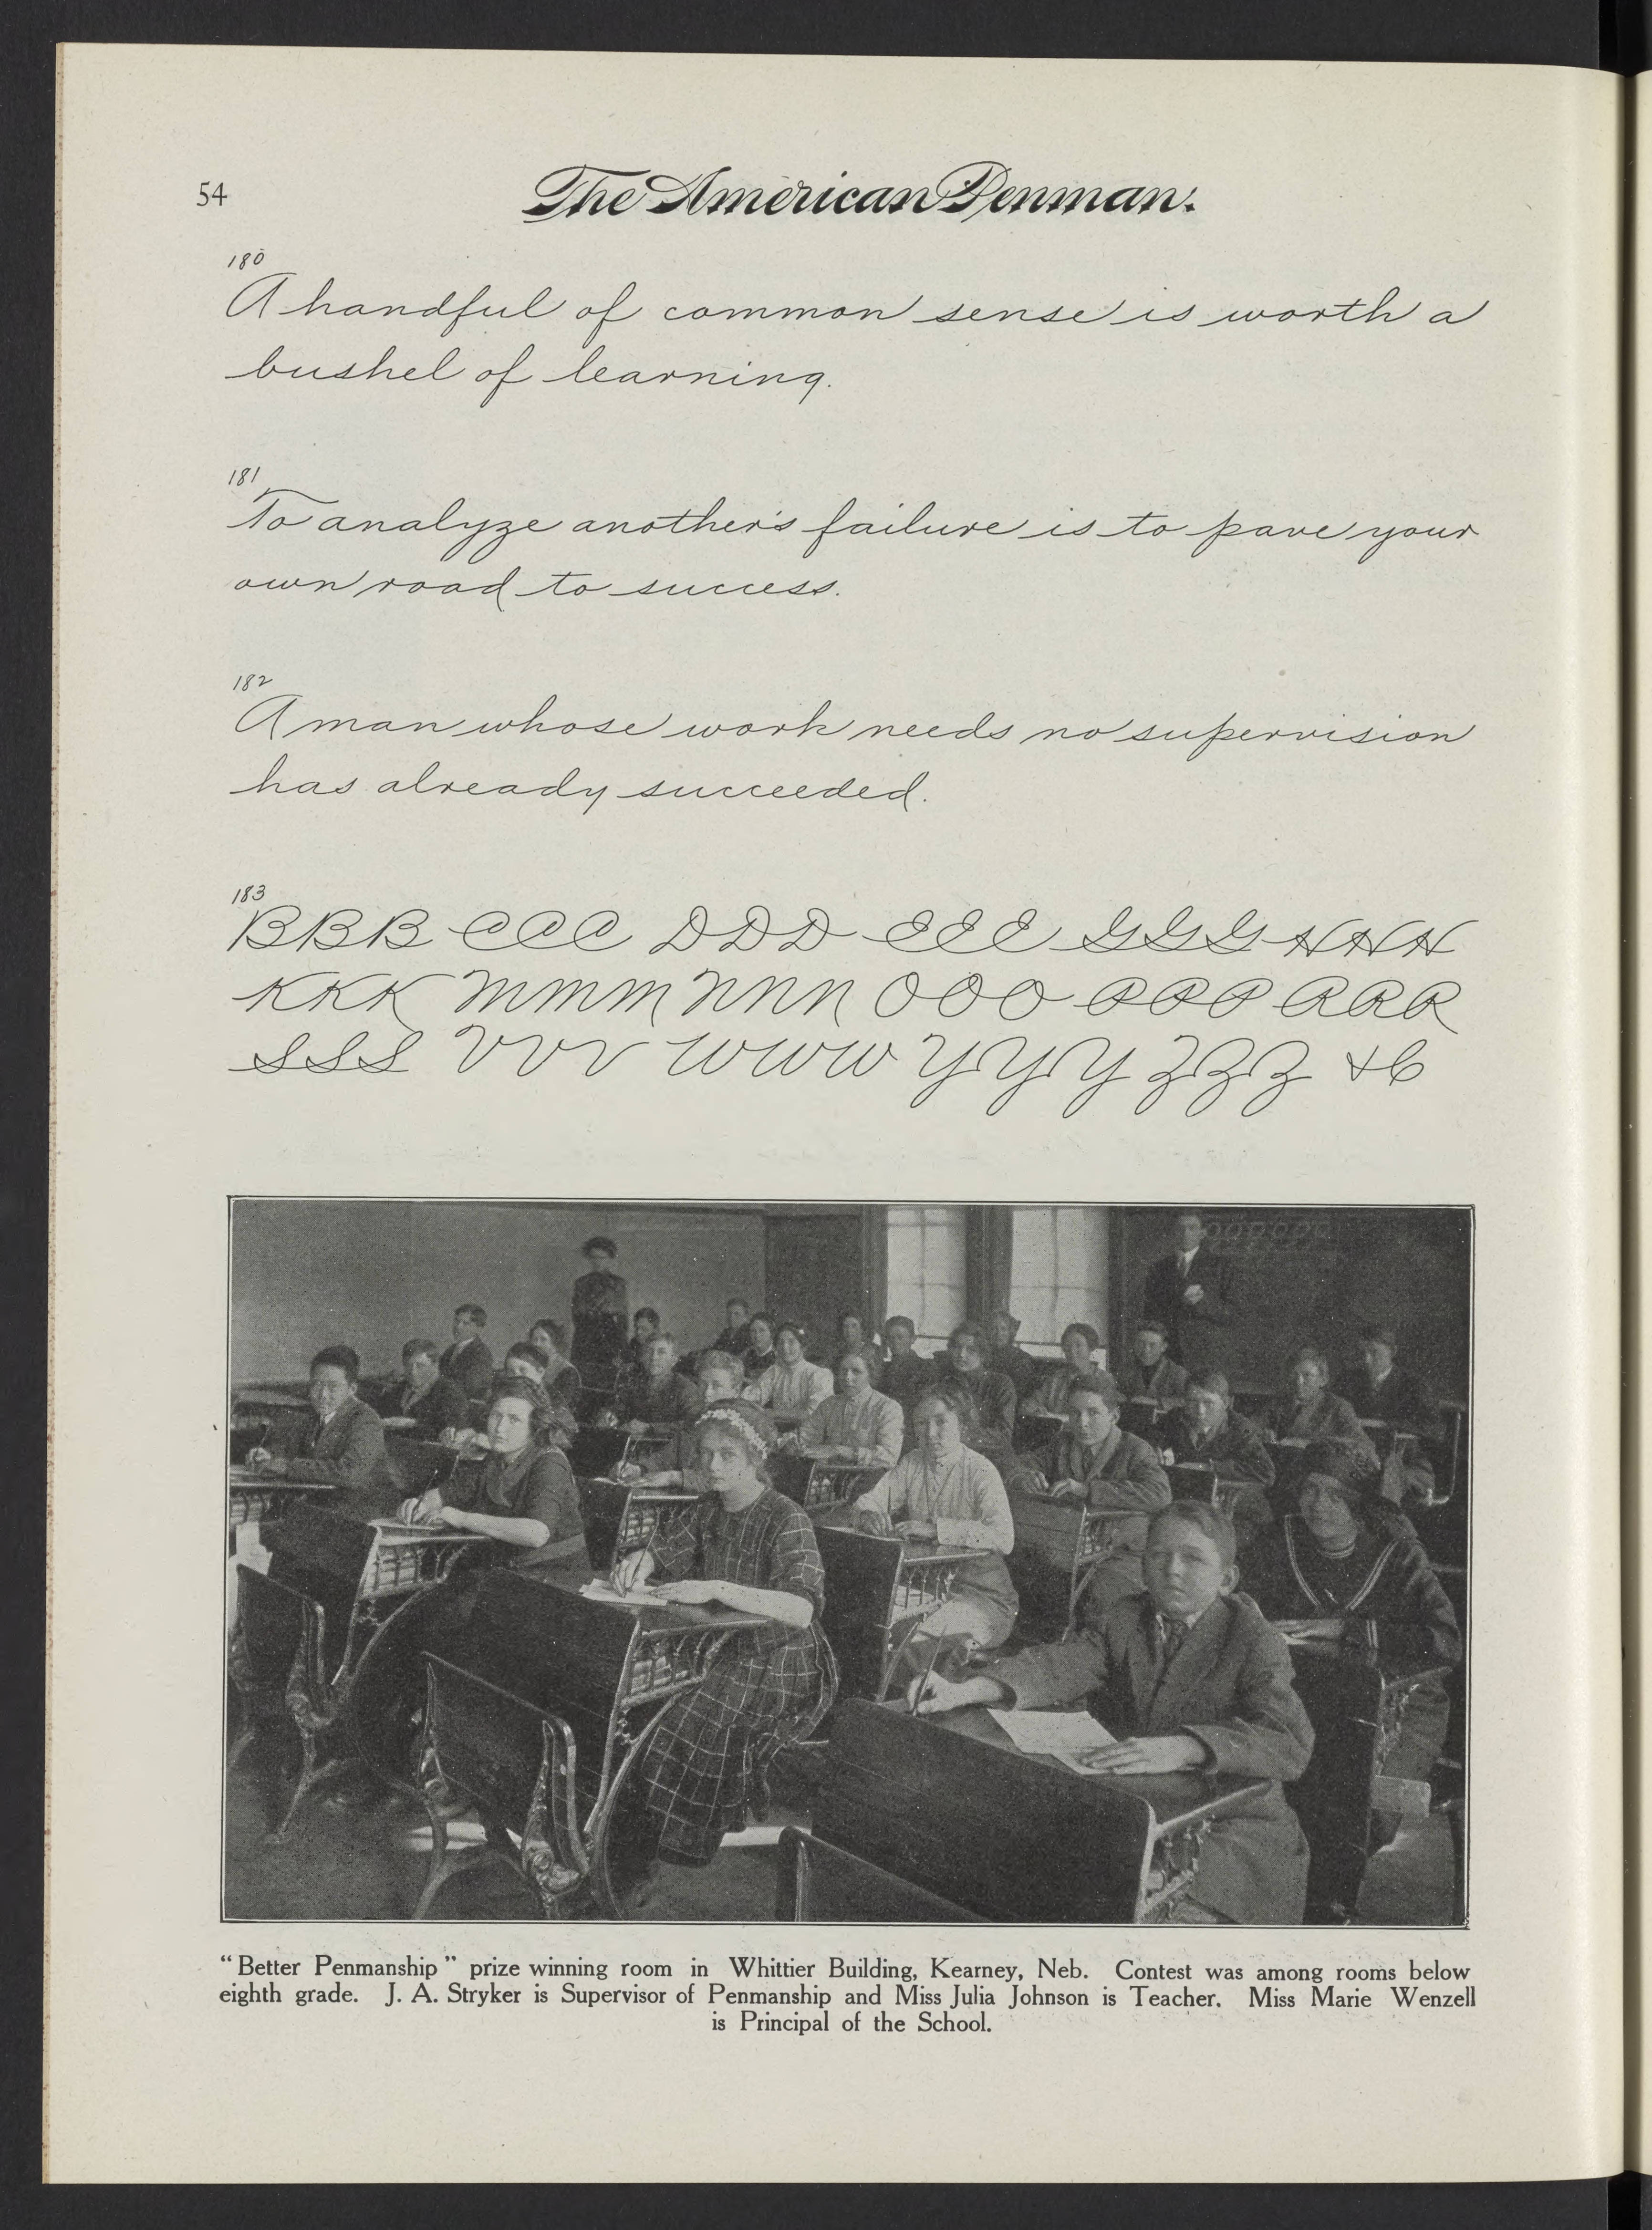 54
The American Penman.
180
A handful of common sense is worth a
bushel of learning.
181
To analyze another's failure is to pave your
own road to success.
182
A man whose work needs no supervision
has already succeeded.
183
BBB CCC DDD EEE GGG HHH
KKK MMM NNN OOO PPP RRR
SSS VVV WWW YYY ZZZ &C
"Better Penmanship" prize winning room in Whittier Building, Kearney, Neb. Contest was among rooms below
eighth grade. J. A. Stryker is Supervisor of Penmanship and Miss Julia Johnson is Teacher. Miss Marie Wenzell
is Principal of the School.